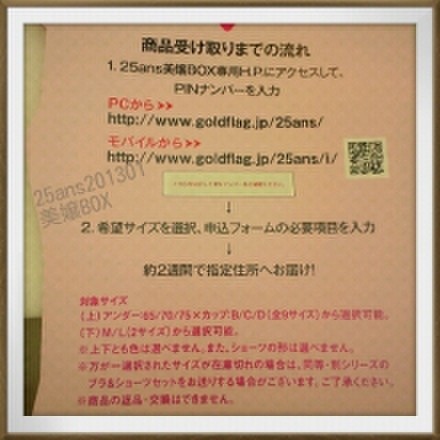 商品受け取りまでの流れ
1. 25ans美嬢BOX専用H.P.にアクセスして、
PINナンバーを入力
PCから>>
http://www.goldflag.jp/25ans/
モバイルから>>
http://www.goldflag.jp/25ans/i/
25ans201301
美嬢BOX
↓
2. 希望サイズを選択、申込フォームの必要項目を入力
↓
約2週間で指定住所へお届け!
対象サイズ
(上)アンダー:65/70/75×カップ:B/C/D(全9サイズ)から選択可能。
(下)M/L(2サイズ)から選択可能。
※上下とも色は選べません。また、ショーツの形は選べません。
※万が一選択されたサイズが在庫切れの場合は、同等・別シリーズの
ブラ&ショーツセットをお送りする場合がございます。ご了承ください。
※商品の返品・交換はできません。